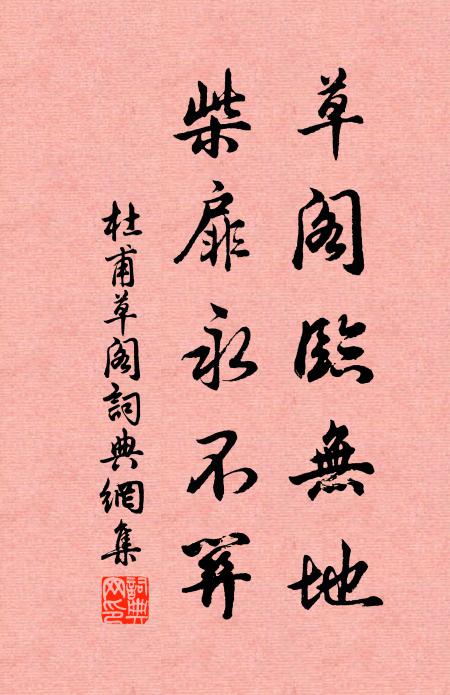 草閣臨無地
柴扉永不關
杜甫草閣詞典網集
詞典
网印